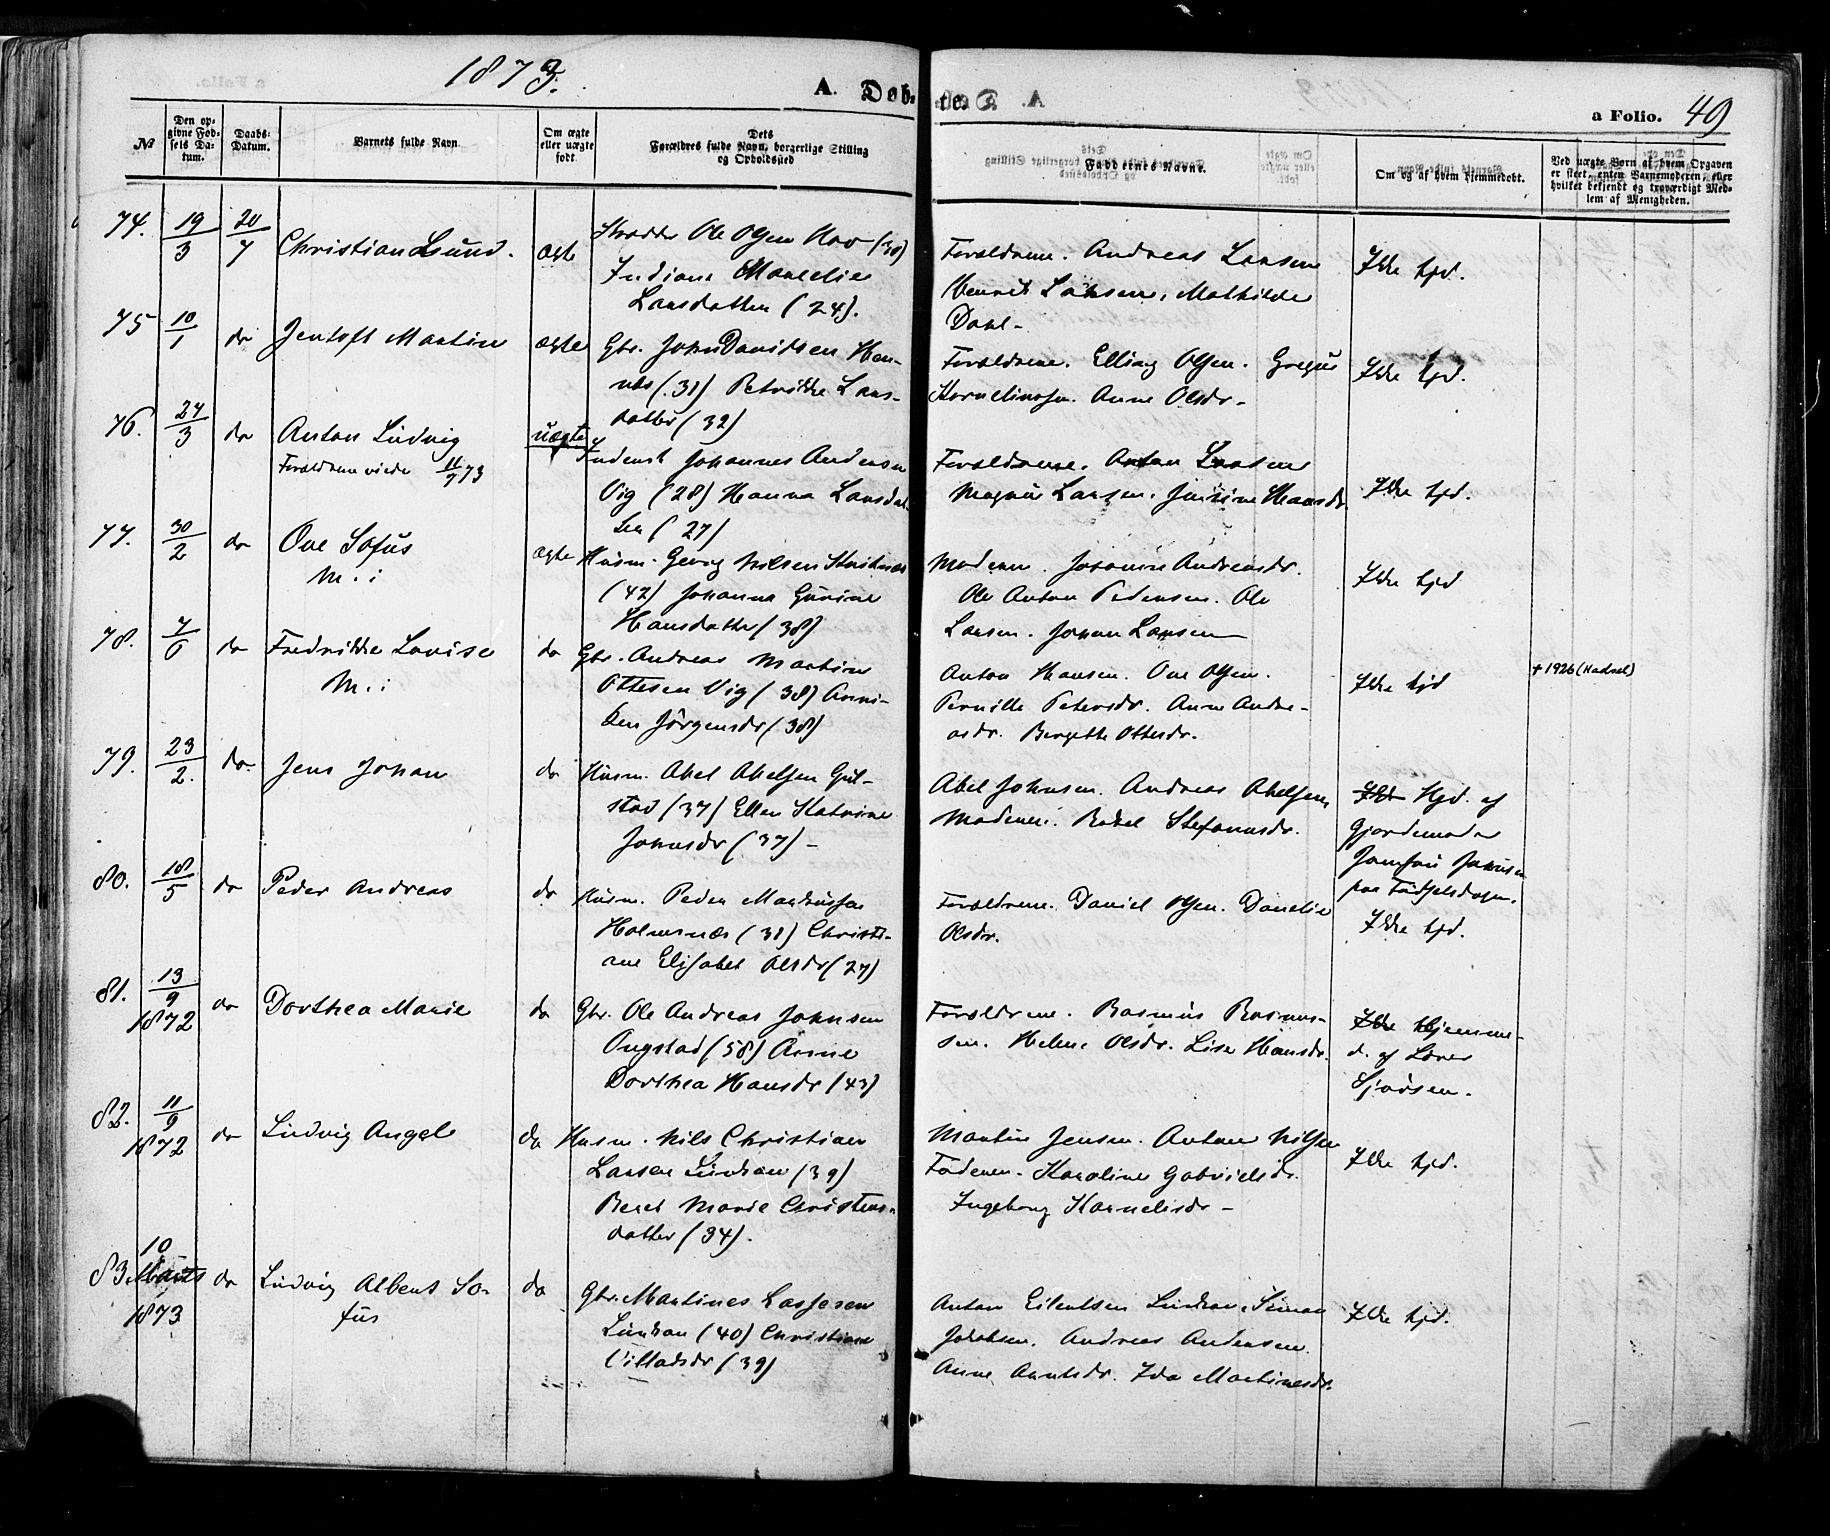 1873.
A. Døb-
te.
a Folio. 49
№
Den op-
givne Fød-
sels Da-
tum.
Daabs-
Datum.
Barnets fulde Navn
Om ægte
eller uægte
født.
Dets
Forældres fulde Navn, borgerlige Stilling
og Opholdssted
Faddernes Navne.
Om og af hvem hjemmedøbt.
Ved uægte Børn af hvem Opgaven
er skeet, enten Barnemoderen, eller
hvilket bekjendt og troværdigt Med-
lem af Menigheden.
74. 19/3 20/7 Christian Lund. ægte
Ole Olsen Hov (30)
Indiane
Larsdatter (24).
Forældrene. Andreas Larsen
Henrik Larsen, Mathilde
Dahl-
Ikke hjd.
75 10/1 do Jentoft Martin ægte
Gbr. John Davidsen Hen-
næs (31) Petrikke Lars-
datter (32)
Forældrene. Elling Olsen. Gregus
Kornelinssn. Anne Olsdr-
Ikke hjd.
76. 27/3 do Anton Ludvig uægte
Forældrene viede 11/7 73
Inderst Johannes Andersen
Vig (28) Hanna Larsdat-
ter (27)
Forældrene. Anton Larsen
Magnus Larsen. Justine Hansdr
Ikke hjd.
77. 30/2 do Ove Sofus ægte
M. i
Husm. Georg Nilsen
(42) Johanna Gurine
Hansdatter (38)
Moderen. Johanne Andreasdr.
Ole Anton Pedersen. Ole
Larsen. Johan Larsen
Ikke hjd
78. 7/6 do Fredrikke Lovise do
M. i
Gbr. Andreas Martin
Ottesen Vig (38) Anni-
ken Jørgensdr (38)
Anton Hansen. Ove Olsen.
Pernille Petersdr. Anne Andre-
asdr. Bergitte Ottesdr.
Ikke hjd
+ 1926 (Hadsel)
79. 23/2. do Jens Johan do
Husm. Abel Abelsen Gul-
stad (37) Ellen Katrine
Johnsdr (37) -
Abel Johnsen. Andreas Abelsen,
Moderen. Rakel Stefansdr.
Ikke Hjd. af
Gjordemoder
paa Fødselsdagen.
80. 18/5 do Peder Andreas do
Husm. Peder Markussen
Holmsnæs (31) Christi-
ane Elisabet Olsdr (27)
Forældrene. Daniel Olsen. Danelie
Olsdr.
Ikke hjd.
81. 13/9 1872 do Dorthea Marie do
Gbr. Ole Andreas Johnsen
Ongstad (58) Anne
Dorthea Hansdr (43)
Forældrene. Rasmus Rasmus-
sen. Helene Olsdr. Lise Hansdr.
Ikke Hjemme-
d. af Lærer
Sjørsen.
82. 11/9 1872 do Ludvig Angel do
Husm. Nils Christian
Larsen Lunkan (39)
Beret Marie Christens-
datter (34).
Martin Jensen. Anton Nilsen
Faderen. Karoline Gabrielsdr.
Ingeborg Kornelisdr -
Ikke hjd.
83 10 Marts 1873 do Ludvig Albert So- do
fus
Gbr. Martines Lassesen
Lunkan (40) Christiane
Villadsdr (39)
Anton Eilertsen Lunkan, Simon
Jakobsen. Andreas Andersen.
Anne Arntsdr. Ida Martinesdr.
Ikke hjd.